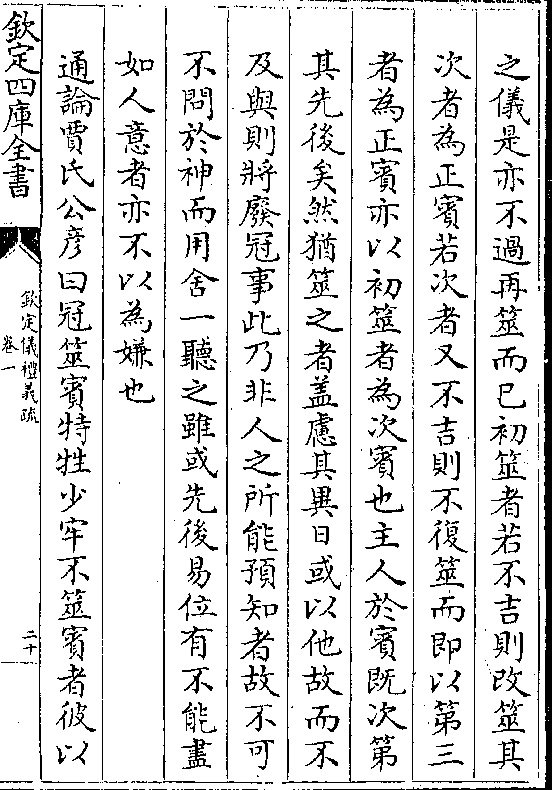 之儀是亦不過再筮而已初筮者若不吉則改筮其
次者為正賓若次者又不吉則不復筮而即以第三
者為正賓亦以初筮者為次賓也主人於賓既次第
其先後矣然猶筮之者盖慮其異日或以他故而不
及與則將廢冠事此乃非人之所能預知者故不可
不問於神而用舍一聽之雖或先後易位有不能盡
如人意者亦不以為嫌也
通論賈氏公彦曰冠筮賓特牲少牢不筮賓者彼以
欽定四庫全書
欽定儀禮義疏
卷一
二十